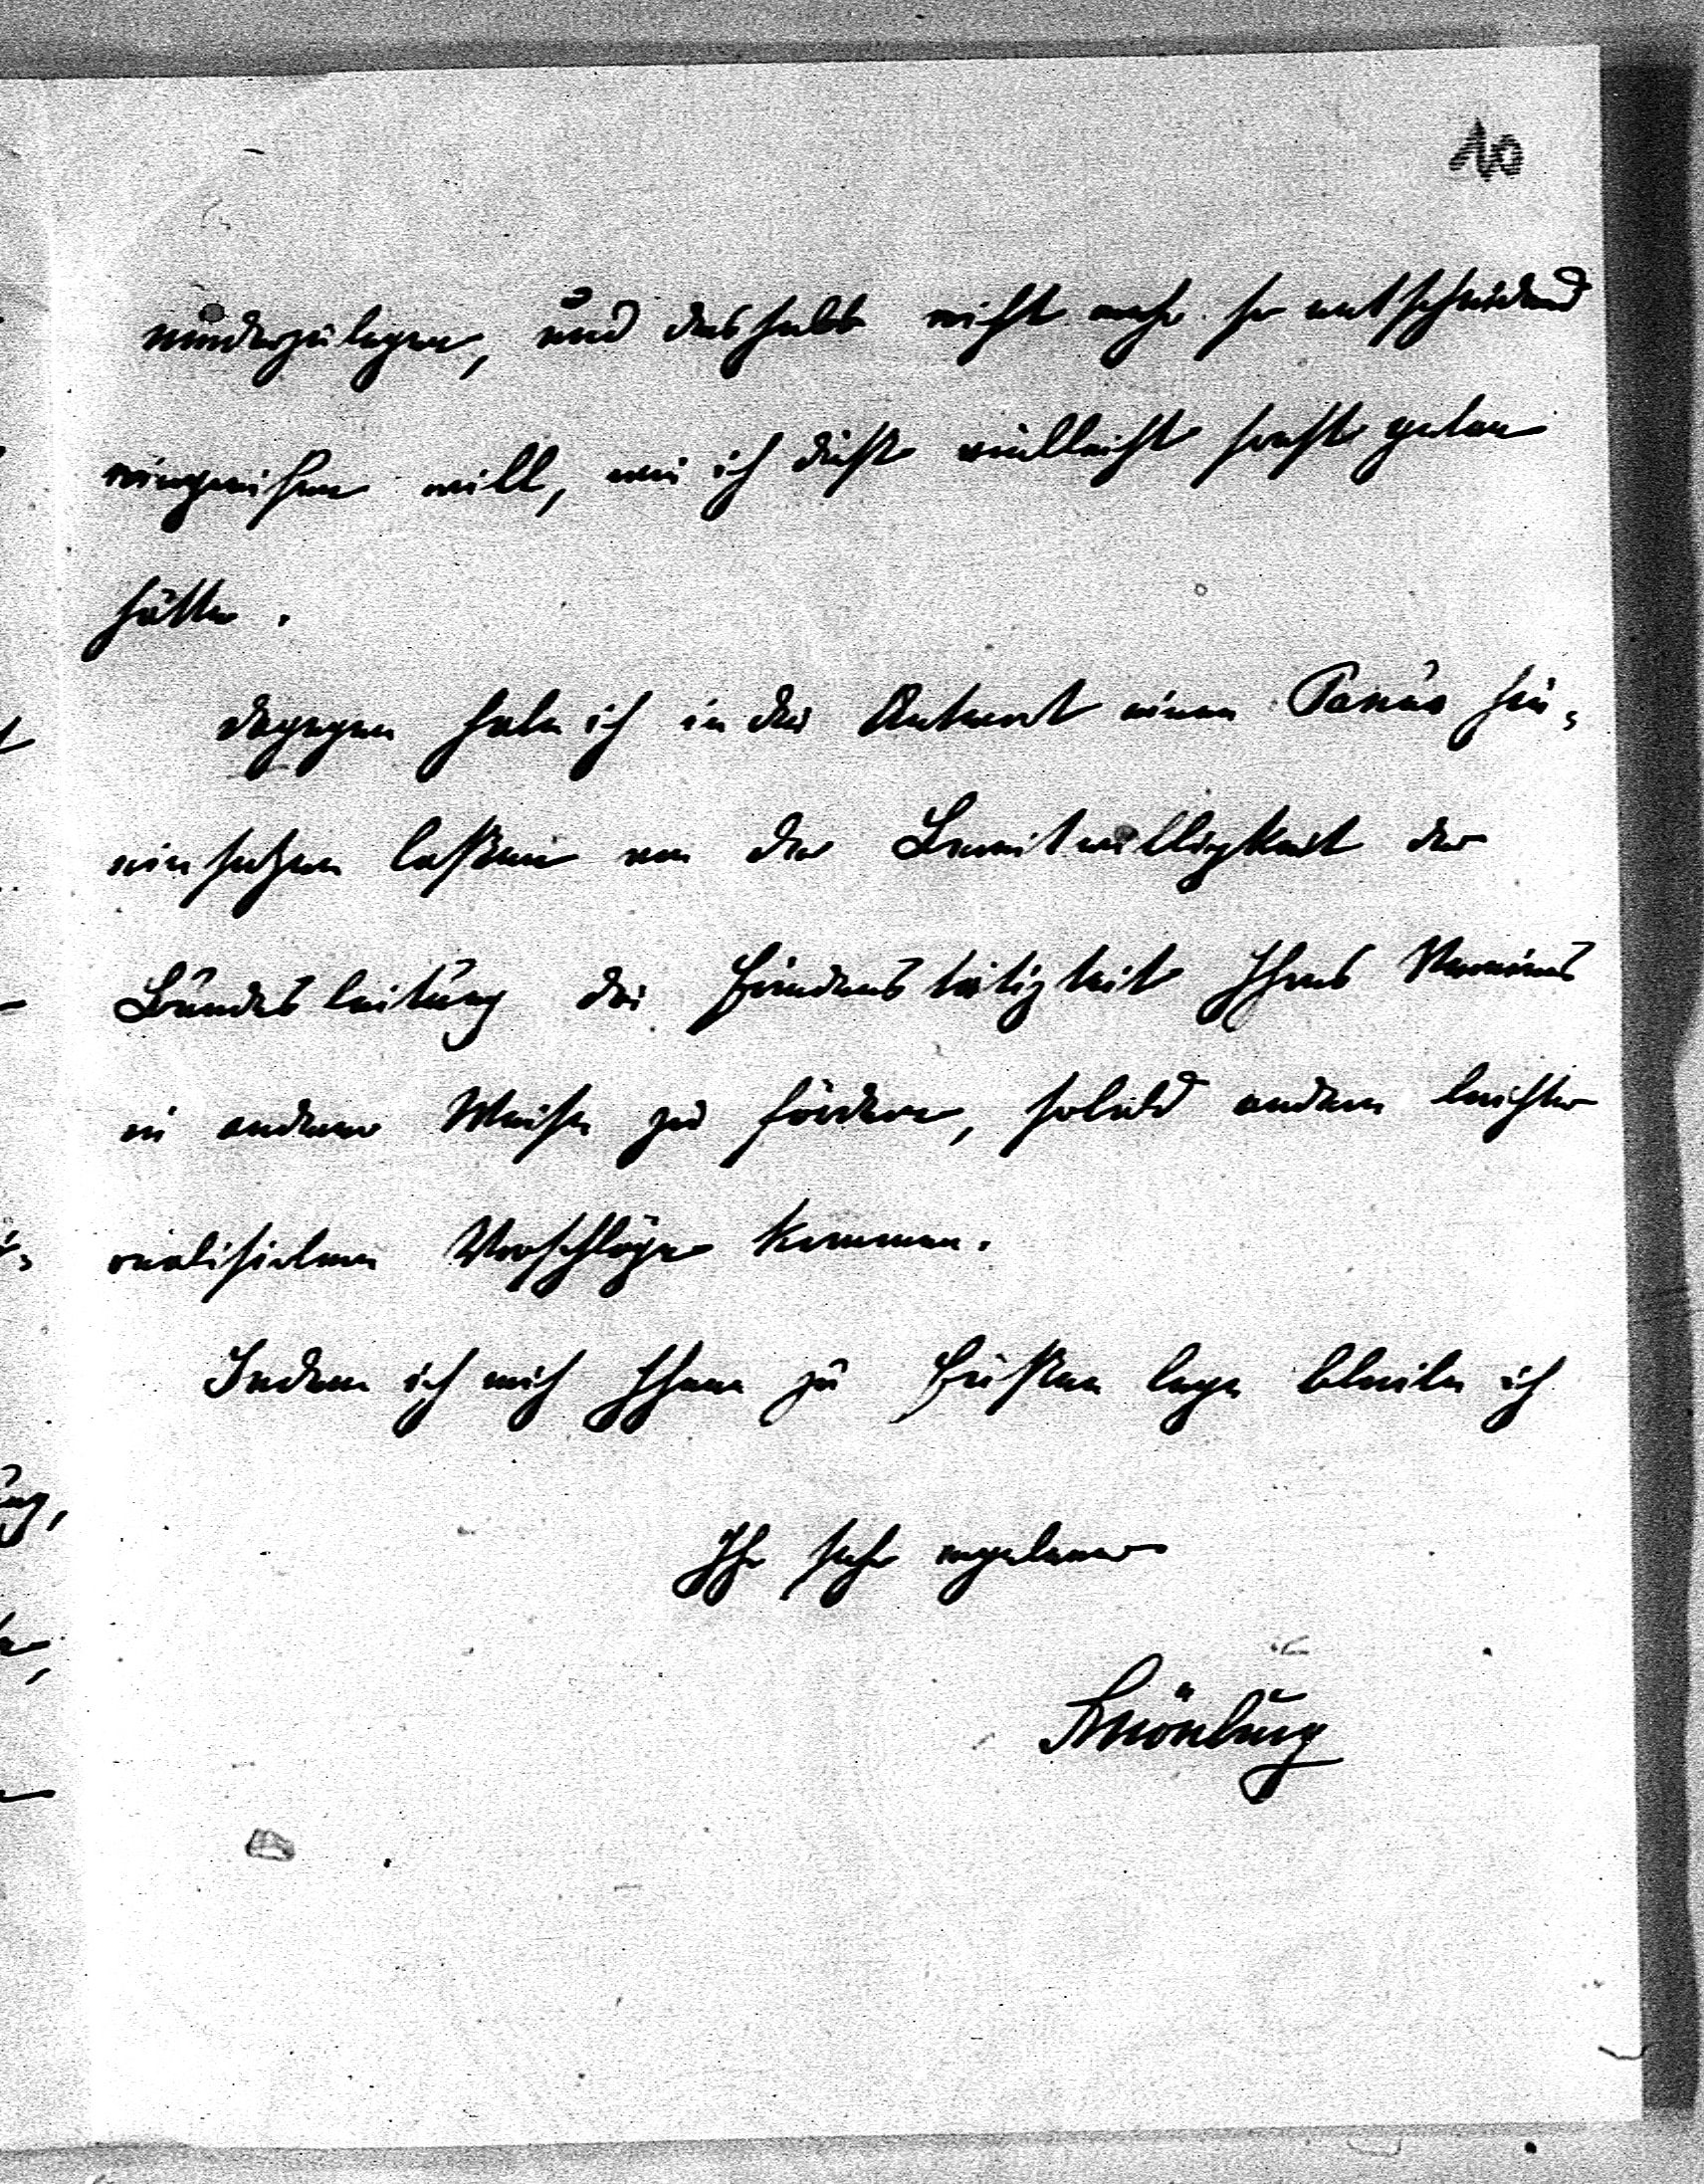 10
niederzulegen, und deshalb nicht mehr so entscheidend
eingreifen will, wie ich dieß vielleicht sonst getan
hätte.
Dagegen habe ich in der Antwort einen Passus hin-
einsetzen laßen von der Bereitwilligkeit der
Bundesleitung die Friedenstätigkeit Ihres Vereines
in anderer Weise zu fördern, sobald andere leichter
realisirbare Vorschläge kommen.
Indem ich mich Ihnen zu Füßen lege bleibe ich
Ihr sehr ergebener
Schönburg